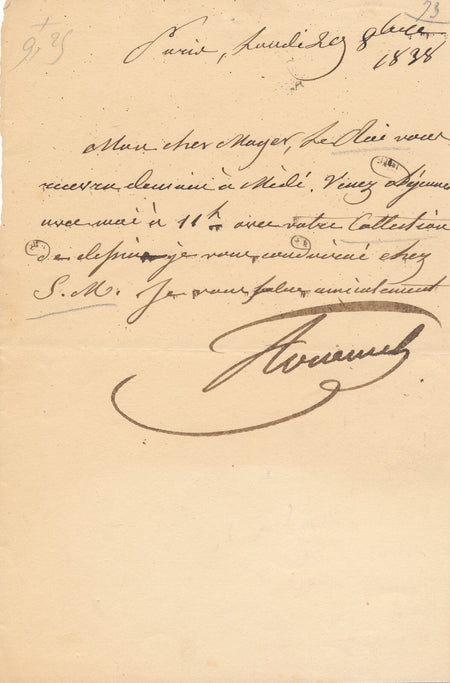 Paris, Lundi 29 8bre
1838
Mon cher Mayer, Le Roi vous
recevra demain à Midi. Venez déjeuner
avec moi à 11h avec votre Collection
de dessins je vous conduirai chez
S.M. Je vous salue amicalement